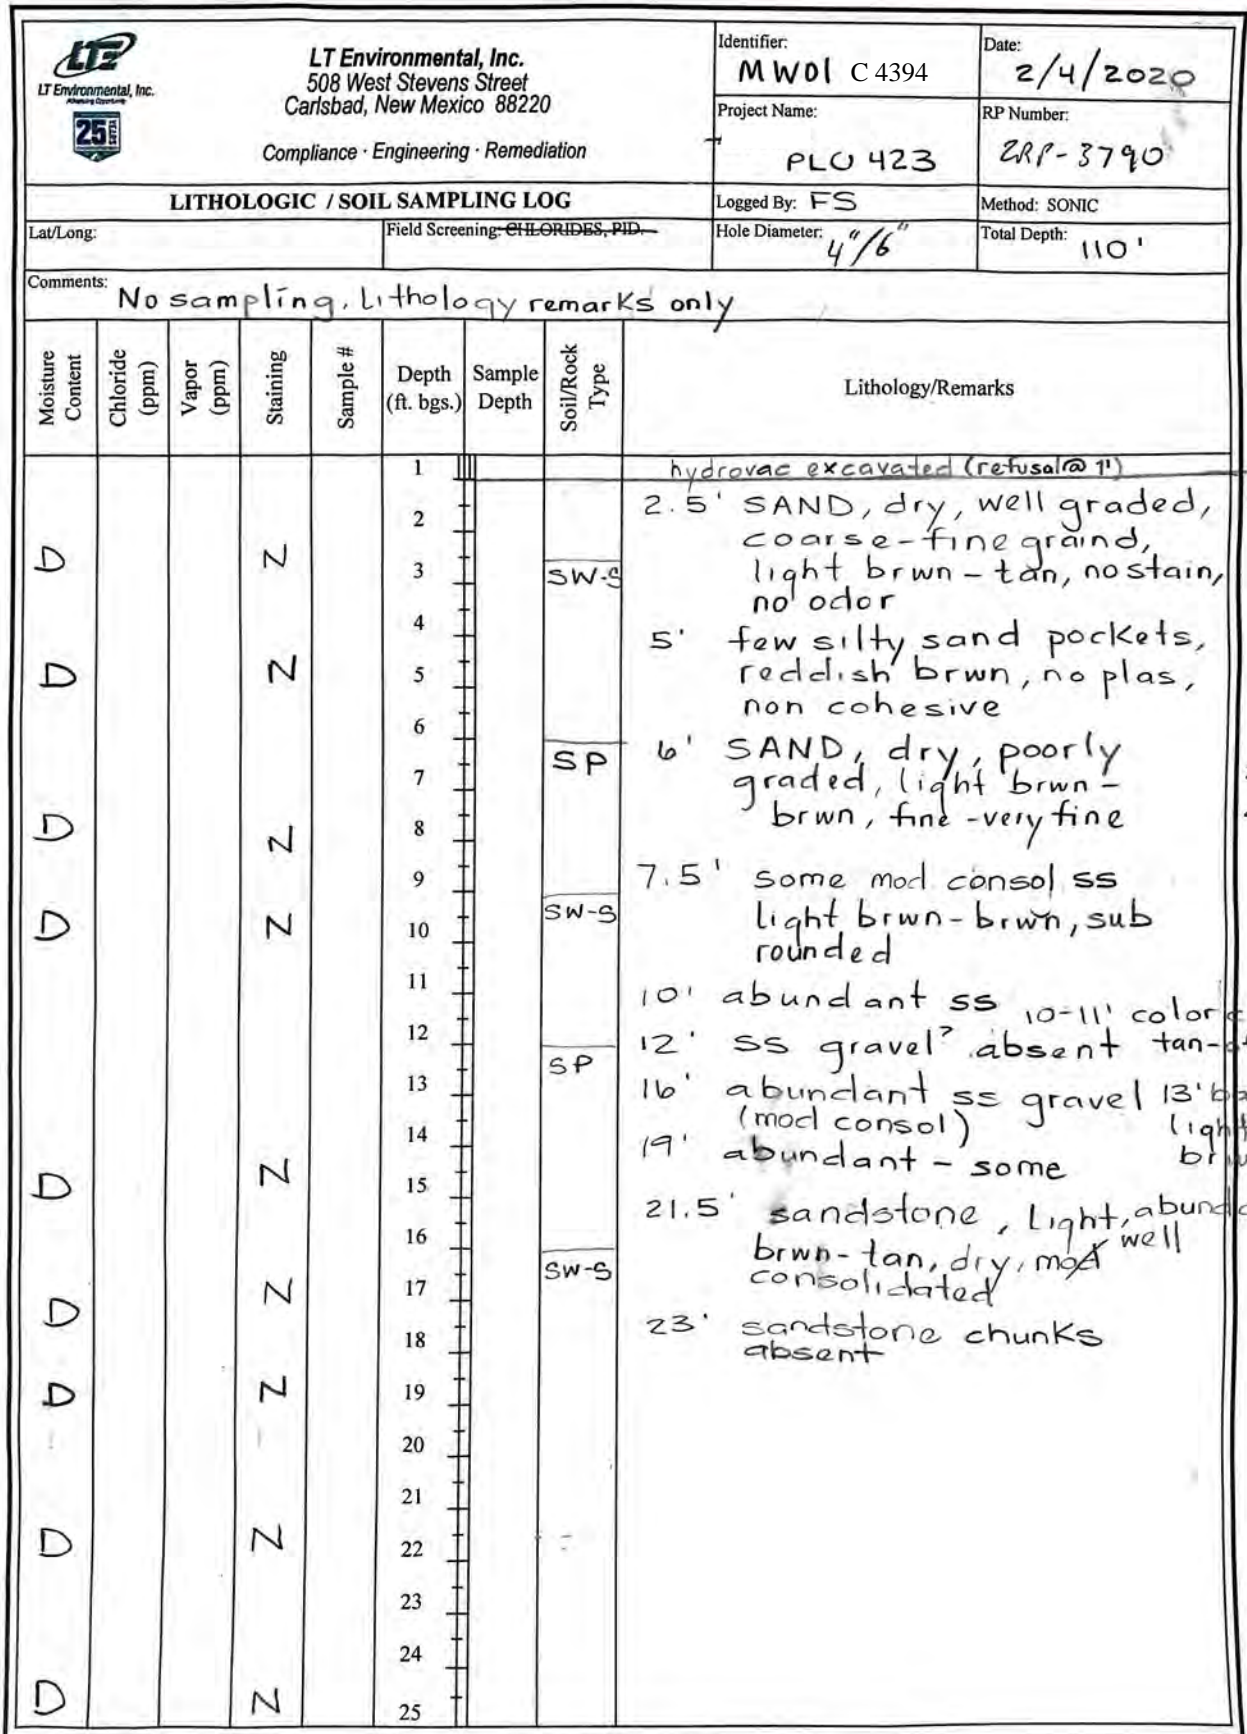 LTE
LT Environmental, Inc.
Advancing Opportunity
25 YEARS
LT Environmental, Inc.
508 West Stevens Street
Carlsbad, New Mexico 88220
Compliance · Engineering · Remediation
Identifier:
MW01 C 4394
Date:
2/4/2020
Project Name:
PLU 423
RP Number:
2RP-3790
LITHOLOGIC / SOIL SAMPLING LOG
Logged By: FS
Method: SONIC
Lat/Long:
Field Screening: CHLORIDES, PID.
Hole Diameter: 4"/6"
Total Depth: 110'
Comments: No sampling, Lithology remarks only
Moisture Content
Chloride (ppm)
Vapor (ppm)
Staining
Sample #
Depth (ft. bgs.)
Sample Depth
Soil/Rock Type
Lithology/Remarks
1
hydrovac excavated (refusal@ 1')
2
2.5' SAND, dry, well graded,
coarse-fine graind,
D N 3 SW-S light brwn - tan, no stain,
no odor
4
5' few silty sand pockets,
D N 5 reddish brwn, no plas,
non cohesive
6
SP 6' SAND, dry, poorly
7 graded, light brwn -
D N 8 brwn, fine -very fine
9 7.5' some mod consol ss
D N 10 SW-S light brwn - brwn, sub
rounded
11
10' abundant ss 10-11' color
12 12' ss gravel? absent tan-
13 SP 16' abundant ss gravel 13'
14 (mod consol) light
19' abundant - some
D N 15
21.5' sandstone, Light,
16 brwn - tan, dry, mod well
D N 17 SW-S consolidated
18 23' sandstone chunks
absent
D N 19
20
21
D N 22
23
24
D N 25